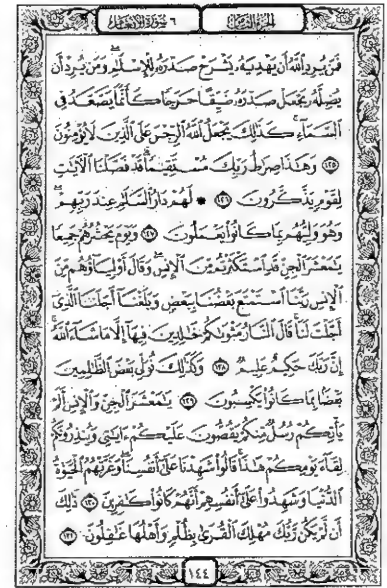 الجزء الثامن
٦ سورة الأنعام
فَمَن يُرِدِ ٱللَّهُ أَن يَهْدِيَهُۥ يَشْرَحْ صَدْرَهُۥ لِلْإِسْلَٰمِ ۖ وَمَن يُرِدْ أَن
يُضِلَّهُۥ يَجْعَلْ صَدْرَهُۥ ضَيِّقًا حَرَجًا كَأَنَّمَا يَصَّعَّدُ فِى
ٱلسَّمَآءِ ۚ كَذَٰلِكَ يَجْعَلُ ٱللَّهُ ٱلرِّجْسَ عَلَى ٱلَّذِينَ لَا يُؤْمِنُونَ
١٢٥ وَهَٰذَا صِرَٰطُ رَبِّكَ مُسْتَقِيمًا ۗ قَدْ فَصَّلْنَا ٱلْءَايَٰتِ
لِقَوْمٍ يَذَّكَّرُونَ ١٢٦ * لَهُمْ دَارُ ٱلسَّلَٰمِ عِندَ رَبِّهِمْ ۖ
وَهُوَ وَلِيُّهُم بِمَا كَانُوا۟ يَعْمَلُونَ ١٢٧ وَيَوْمَ يَحْشُرُهُمْ جَمِيعًا
يَٰمَعْشَرَ ٱلْجِنِّ قَدِ ٱسْتَكْثَرْتُم مِّنَ ٱلْإِنسِ ۖ وَقَالَ أَوْلِيَآؤُهُم مِّنَ
ٱلْإِنسِ رَبَّنَا ٱسْتَمْتَعَ بَعْضُنَا بِبَعْضٍ وَبَلَغْنَآ أَجَلَنَا ٱلَّذِىٓ
أَجَّلْتَ لَنَا ۚ قَالَ ٱلنَّارُ مَثْوَىٰكُمْ خَٰلِدِينَ فِيهَآ إِلَّا مَا شَآءَ ٱللَّهُ ۗ
إِنَّ رَبَّكَ حَكِيمٌ عَلِيمٌ ١٢٨ وَكَذَٰلِكَ نُوَلِّى بَعْضَ ٱلظَّٰلِمِينَ
بَعْضًۢا بِمَا كَانُوا۟ يَكْسِبُونَ ١٢٩ يَٰمَعْشَرَ ٱلْجِنِّ وَٱلْإِنسِ أَلَمْ
يَأْتِكُمْ رُسُلٌ مِّنكُمْ يَقُصُّونَ عَلَيْكُمْ ءَايَٰتِى وَيُنذِرُونَكُمْ
لِقَآءَ يَوْمِكُمْ هَٰذَا ۚ قَالُوا۟ شَهِدْنَا عَلَىٰٓ أَنفُسِنَا ۖ وَغَرَّتْهُمُ ٱلْحَيَوٰةُ
ٱلدُّنْيَا وَشَهِدُوا۟ عَلَىٰٓ أَنفُسِهِمْ أَنَّهُمْ كَانُوا۟ كَٰفِرِينَ ١٣٠ ذَٰلِكَ
أَن لَّمْ يَكُن رَّبُّكَ مُهْلِكَ ٱلْقُرَىٰ بِظُلْمٍ وَأَهْلُهَا غَٰفِلُونَ ١٣١
١٤٤